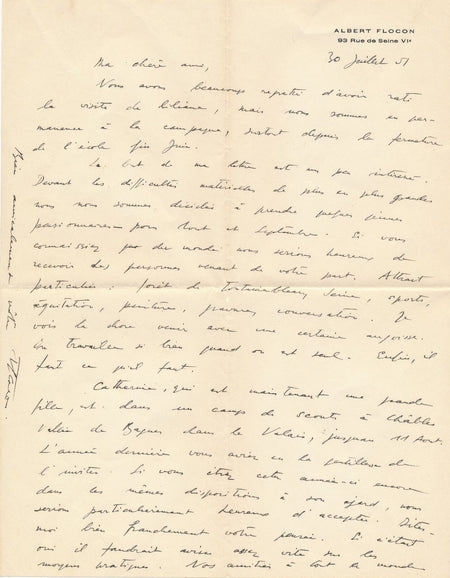 ALBERT FLOCON
93 Rue de Seine VIe
30 Juillet 51
Ma chère amie,
Nous avons beaucoup regretté d'avoir raté
la visite de Liliane, mais nous sommes en per-
manence à la campagne, surtout depuis la fermeture
de l'école fin Juin.
Le but de ma lettre est un peu intéressé.
Devant les difficultés matérielles de plus en plus grandes
nous nous sommes décidés à prendre quelques jeunes
pensionnaires pour Août et Septembre. Si vous
connaissiez par du monde nous serions heureux de
recevoir des personnes venant de votre part. Attrait
particulier: forêt de Fontainebleau, Seine, sports,
équitation, peintures, gravures, conversation. Je
vois la chose venir avec une certaine angoisse.
On travaille si bien quand on est seul. Enfin, il
faut ce qu'il faut.
Catherine, qui est maintenant une grande
fille, est dans un camp de scouts à Châbles
Vallée de Bagnes dans le Valais, jusqu'au 11 Août.
L'année dernière vous aviez eu la gentillesse de
l'inviter. Si vous étiez cette année-ci encore
dans les mêmes dispositions à son égard, nous
serions particulièrement heureux d'accepter. Dites-
moi bien franchement votre pensée. Si c'était
oui il faudrait aviser assez vite sur les
moyens pratiques. Nos amitiés à tout le monde
Bien amicalement vôtre Flocon.